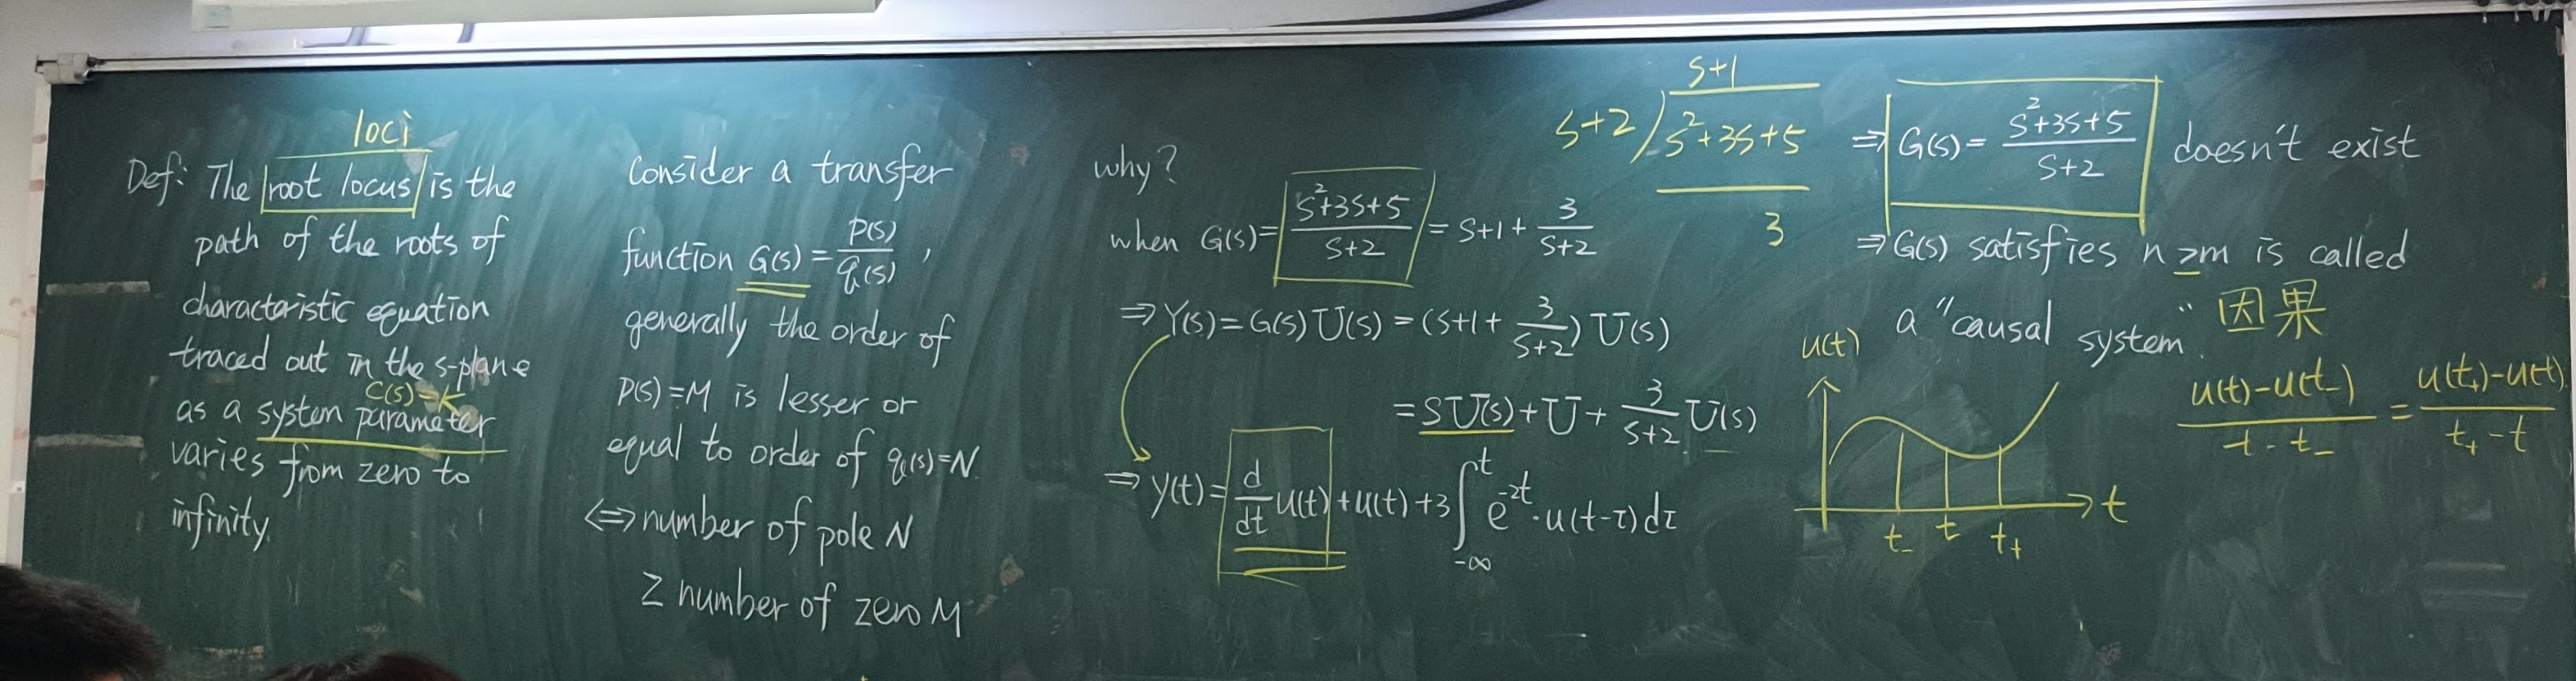 loci
Def: The root locus is the
path of the roots of
characteristic equation
traced out in the s-plane
C(s)=K
as a system parameter
varies from zero to
infinity.
Consider a transfer
function G(s) = P(s)/q(s) ,
generally the order of
P(s)=M is lesser or
equal to order of q(s)=N.
⇔ number of pole N
≥ number of zero M
why?
when G(s)= (s²+3s+5)/(s+2) = s+1+ 3/(s+2)
⇒ Y(s)=G(s)U(s) = (s+1+ 3/(s+2)) U(s)
= sU(s)+U+ 3/(s+2) U(s)
⇒ y(t)= d/dt u(t)+u(t)+3∫_{-∞}^{t} e^{-2t}·u(t-τ)dτ
s+1
s+2 ) s²+3s+5
3
⇒ G(s)= (s²+3s+5)/(s+2) doesn't exist
⇒ G(s) satisfies n≥m is called
a "causal system". 因果
u(t)
t₋ t t₊
t
(u(t)-u(t₋))/(t-t₋) = (u(t₊)-u(t))/(t₊-t)